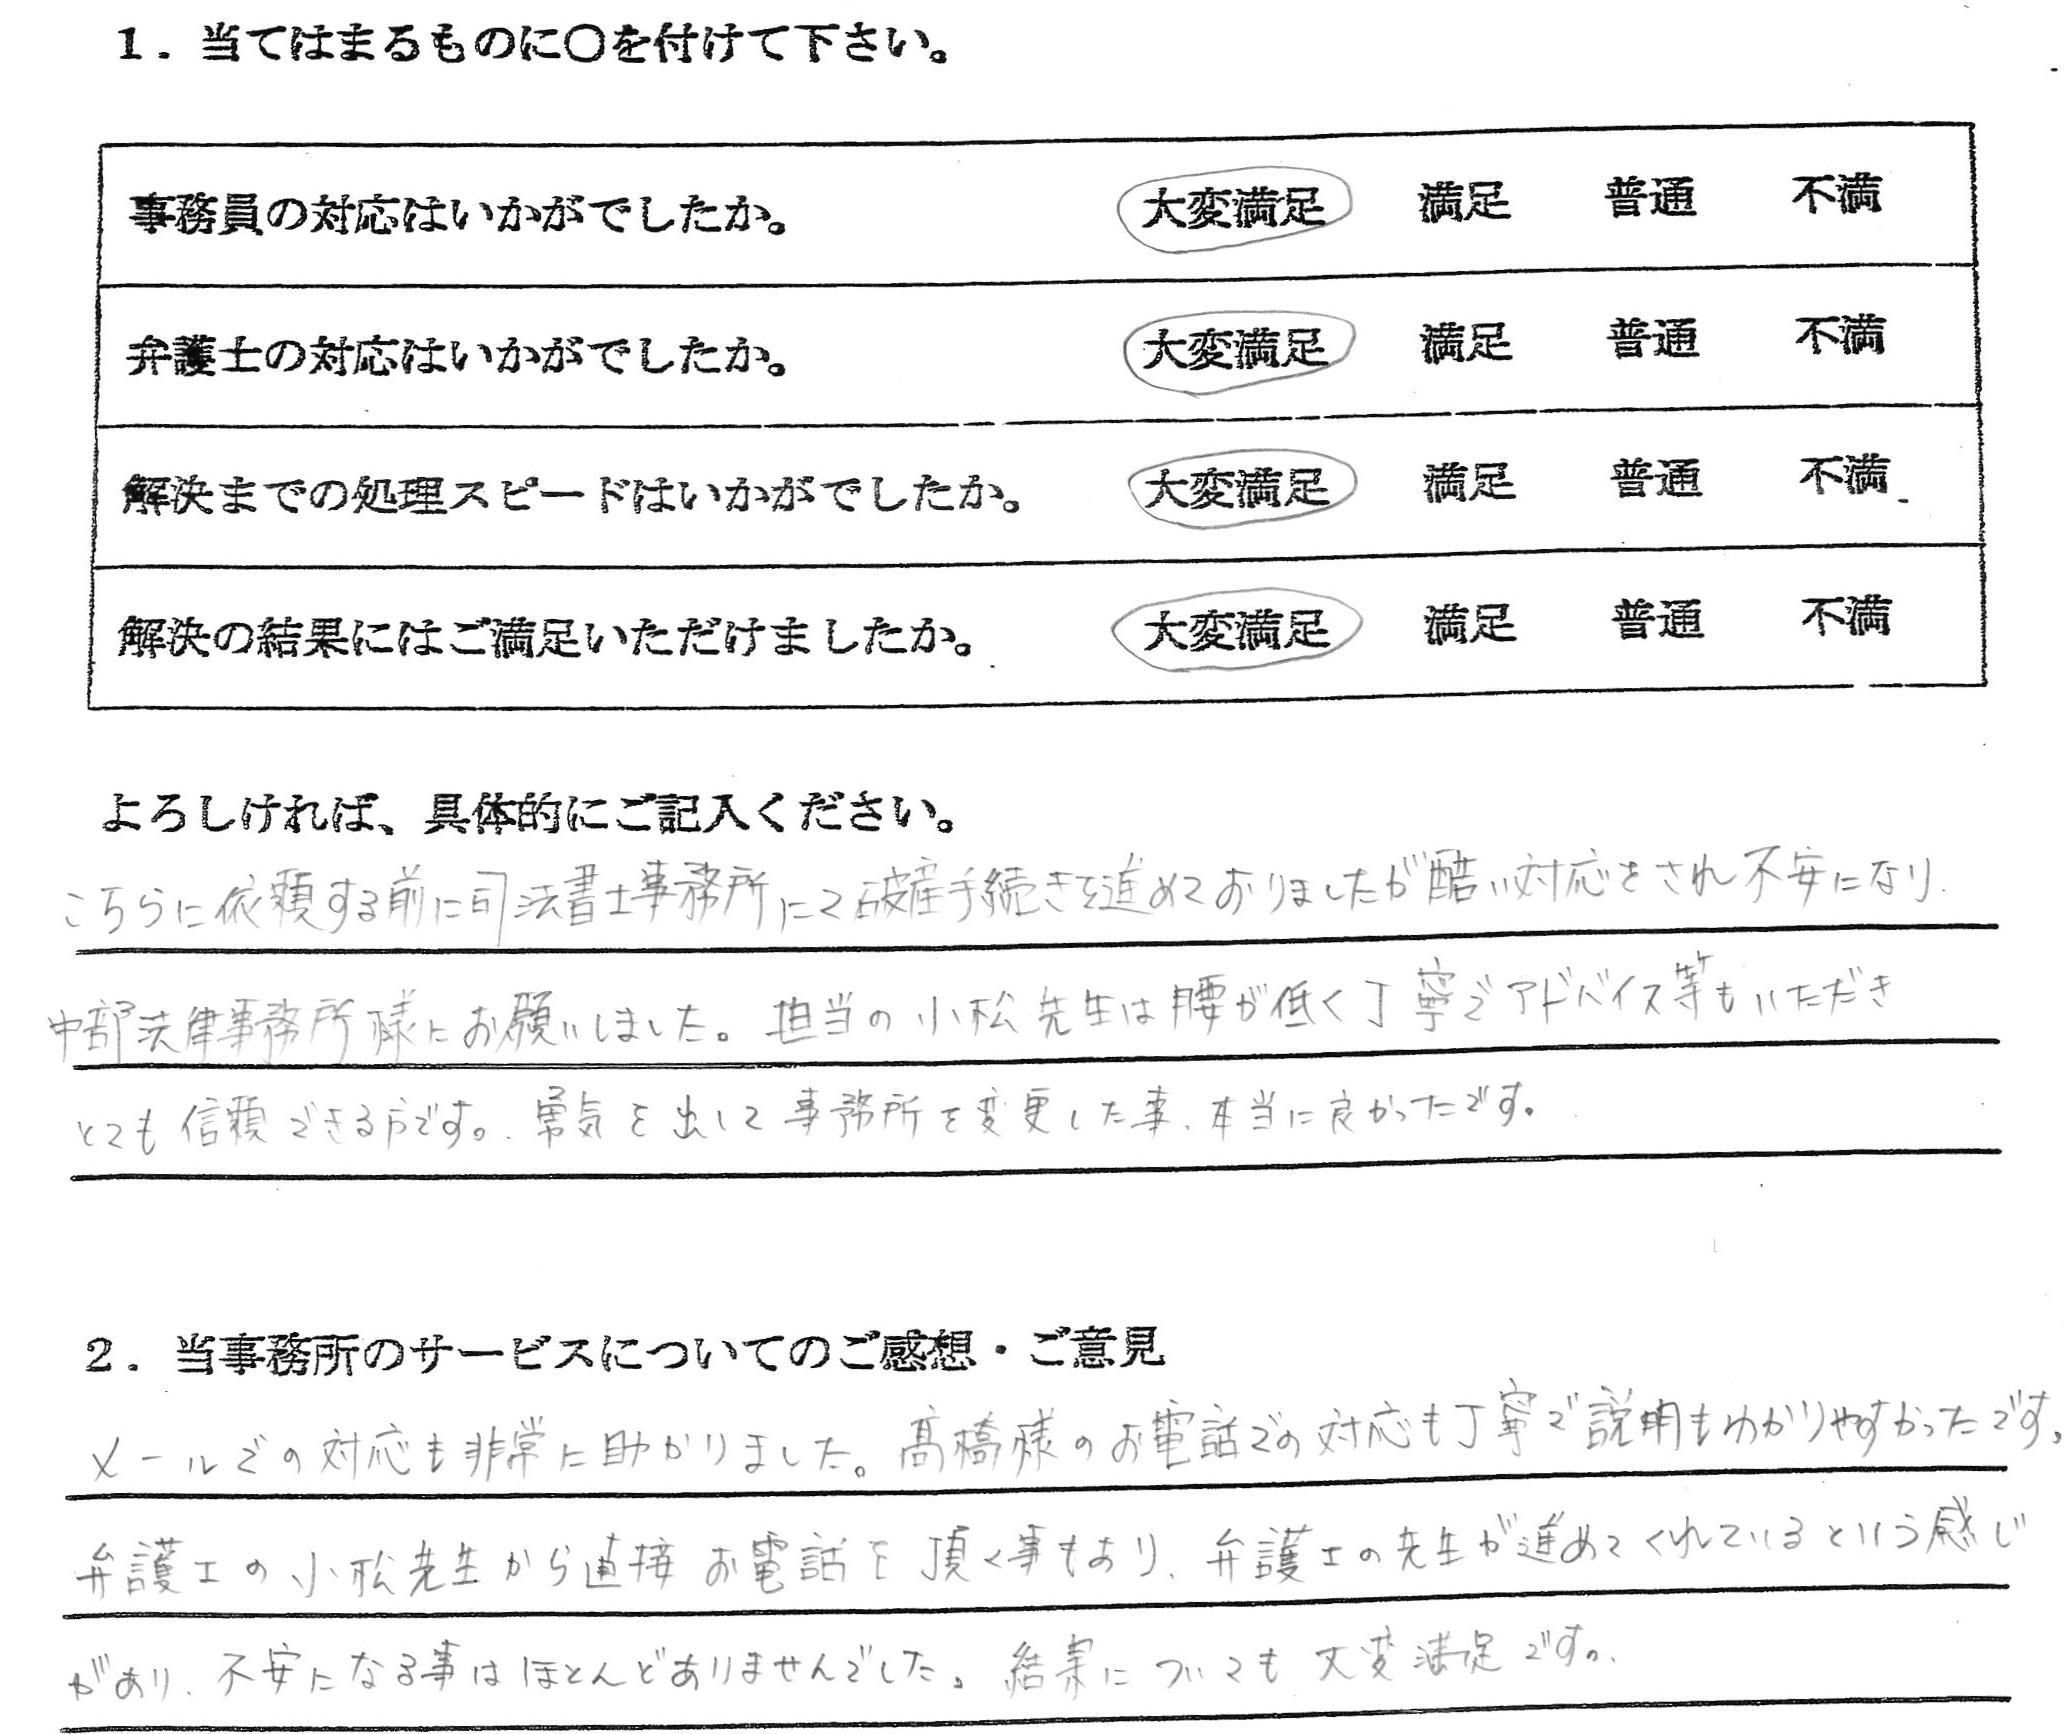 1. 当てはまるものに〇を付けて下さい。
事務員の対応はいかがでしたか。 大変満足 満足 普通 不満
弁護士の対応はいかがでしたか。 大変満足 満足 普通 不満
解決までの処理スピードはいかがでしたか。 大変満足 満足 普通 不満
解決の結果にはご満足いただけましたか。 大変満足 満足 普通 不満
よろしければ、具体的にご記入ください。
こちらに依頼する前に司法書士事務所にて破産手続きを進めておりましたが酷い対応をされ不安になり、
中部法律事務所様にお願いしました。担当の小松先生は腰が低く丁寧でアドバイス等もいただき
とても信頼できる方です。勇気を出して事務所を変更した事、本当に良かったです。
2. 当事務所のサービスについてのご感想・ご意見
メールでの対応も非常に助かりました。髙橋様のお電話での対応も丁寧で説明もわかりやすかったです。
弁護士の小松先生から直接お電話を頂く事もあり、弁護士の先生が進めてくれているという感じ
があり、不安になる事はほとんどありませんでした。結果についても大変満足です。